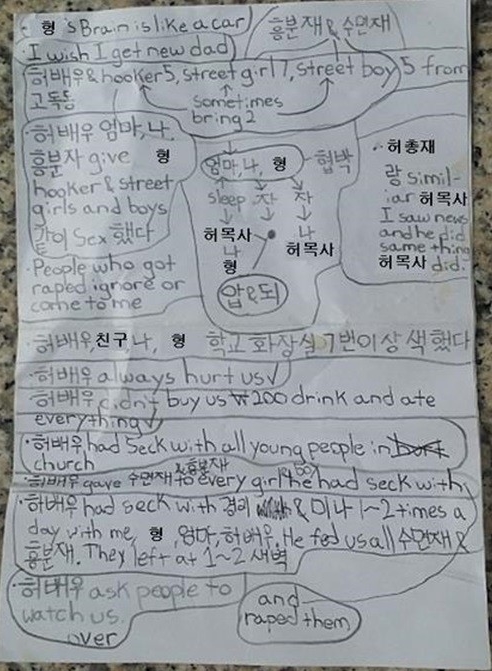 · 형's Brain is like a car
· I wish I get new dad
흥분재 & 수면재
허배우 & hooker 5, street girl 7, street boy 5 from
고독동
sometimes
bring 2
· 허배우 엄마, 나,
흥분자 give 형
hooker & street
girls and boys
같이 sex 했다
· People who got
raped ignore or
come to me
엄마, 나, 형 협박
sleep 자 자
허목사 나
나 허목사
형
압&되
· 허총재
랑 simil-
iar 허목사
I saw news
and he did
same thing
허목사 did.
· 허배우, 친구 나, 형 학교 화장실 7번이상 색했다
· 허배우 always hurt us √
· 허배우 didn't buy us ₩200 drink and ate
everything √
· 허배우 had seck with all young people in
church
· 허배우 gave 수면재 & 흥분재 to every girl & boy he had seck with
· 허배우 had seck with 경리 & 미나 1~2 times a
day with me, 형, 엄마, 허배우. He fed us all 수면재 &
흥분재. They left at 1~2 새벽
· 허배우 ask people to
watch us.
over
and
raped them